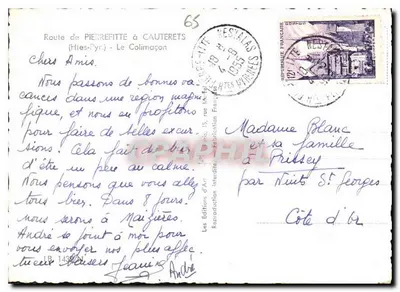 65
Route de PIERREFITTE à CAUTERETS
(Htes-Pyr) - Le Colimaçon
Chers Amis.
Nous passons de bonnes va
cances dans une région magni
fique, et nous en profitons
pour faire de belles excur
sions. Cela fait du bien
d'être un peu au calme.
Nous pensons que vous allez
tous bien. Dans 8 jours
nous serons à Maizières.
André se joint à moi pour
vous envoyer nos plus affec
tueux baisers Jeanine
André
Madame Blanc
et sa famille
à Prissey
par Nuits St Georges
Côte d'Or
12F